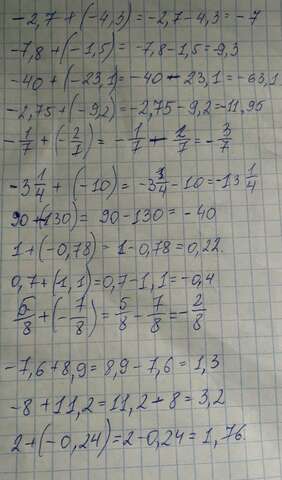 -2,7 + (-4,3) = -2,7 - 4,3 = -7
-7,8 + (-1,5) = -7,8 - 1,5 = -9,3
-40 + (-23,1) = -40 - 23,1 = -63,1
-2,75 + (-9,2) = -2,75 - 9,2 = -11,95
-1/7 + (-2/7) = -1/7 - 2/7 = -3/7
-3 1/4 + (-10) = -3 1/4 - 10 = -13 1/4
90 + (-130) = 90 - 130 = -40
1 + (-0,78) = 1 - 0,78 = 0,22.
0,7 + (-1,1) = 0,7 - 1,1 = -0,4
5/8 + (-7/8) = 5/8 - 7/8 = -2/8
-7,6 + 8,9 = 8,9 - 7,6 = 1,3
-8 + 11,2 = 11,2 + 8 = 3,2
2 + (-0,24) = 2 - 0,24 = 1,76.